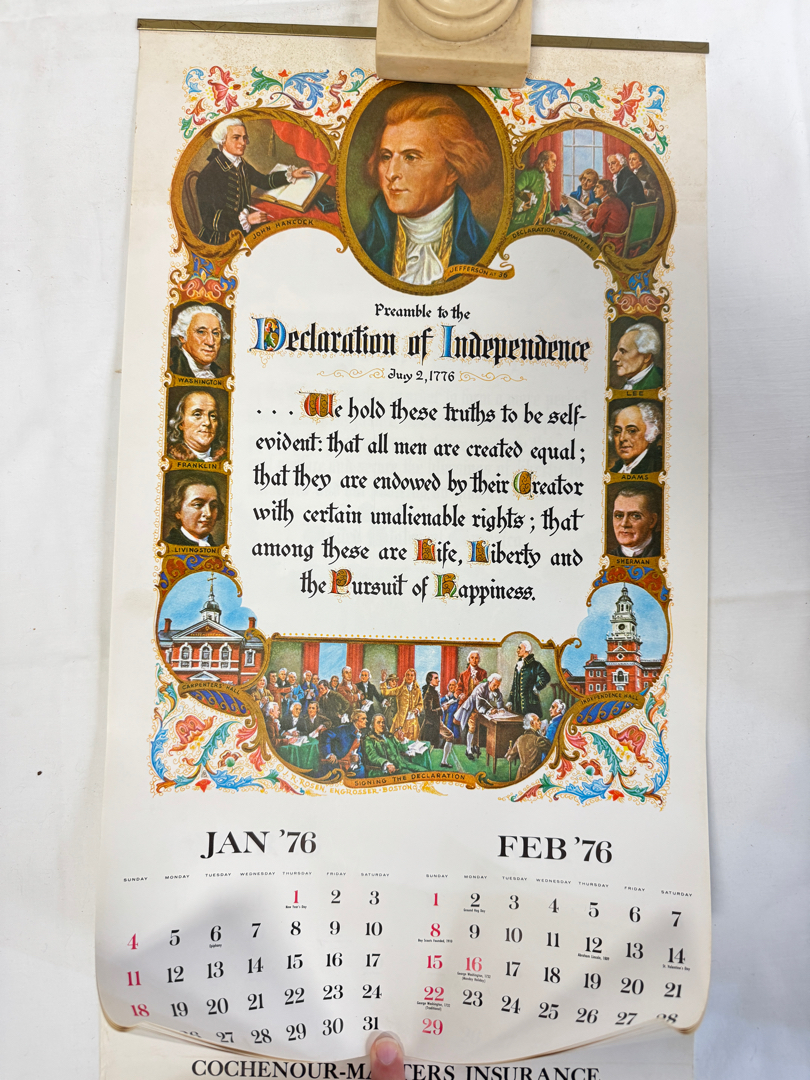 JOHN HANCOCK
JEFFERSON AT 35
DECLARATION COMMITTEE
Preamble to the
Declaration of Independence
July 2, 1776
WASHINGTON
FRANKLIN
LIVINGSTON
LEE
ADAMS
SHERMAN
. . . We hold these truths to be self-
evident: that all men are created equal;
that they are endowed by their Creator
with certain unalienable rights; that
among these are Life, Liberty and
the Pursuit of Happiness.
CARPENTERS HALL
INDEPENDENCE HALL
SIGNING THE DECLARATION
ROSEN, ENGROSSER - BOSTON
JAN '76
SUNDAY MONDAY TUESDAY WEDNESDAY THURSDAY FRIDAY SATURDAY
1 2 3
New Year's Day
4 5 6 7 8 9 10
Epiphany
11 12 13 14 15 16 17
18 19 20 21 22 23 24
26 27 28 29 30 31
FEB '76
SUNDAY MONDAY TUESDAY WEDNESDAY THURSDAY FRIDAY SATURDAY
1 2 3 4 5 6 7
Ground Hog Day
8 9 10 11 12 13 14
Boy Scouts Founded, 1910 Abraham Lincoln, 1809 St. Valentine's Day
15 16 17 18 19 20 21
George Washington, 1732
(Monday Holiday)
22 23 24 25 26 27 28
George Washington, 1732
(Traditional)
29
COCHENOUR-MA TERS INSURANCE